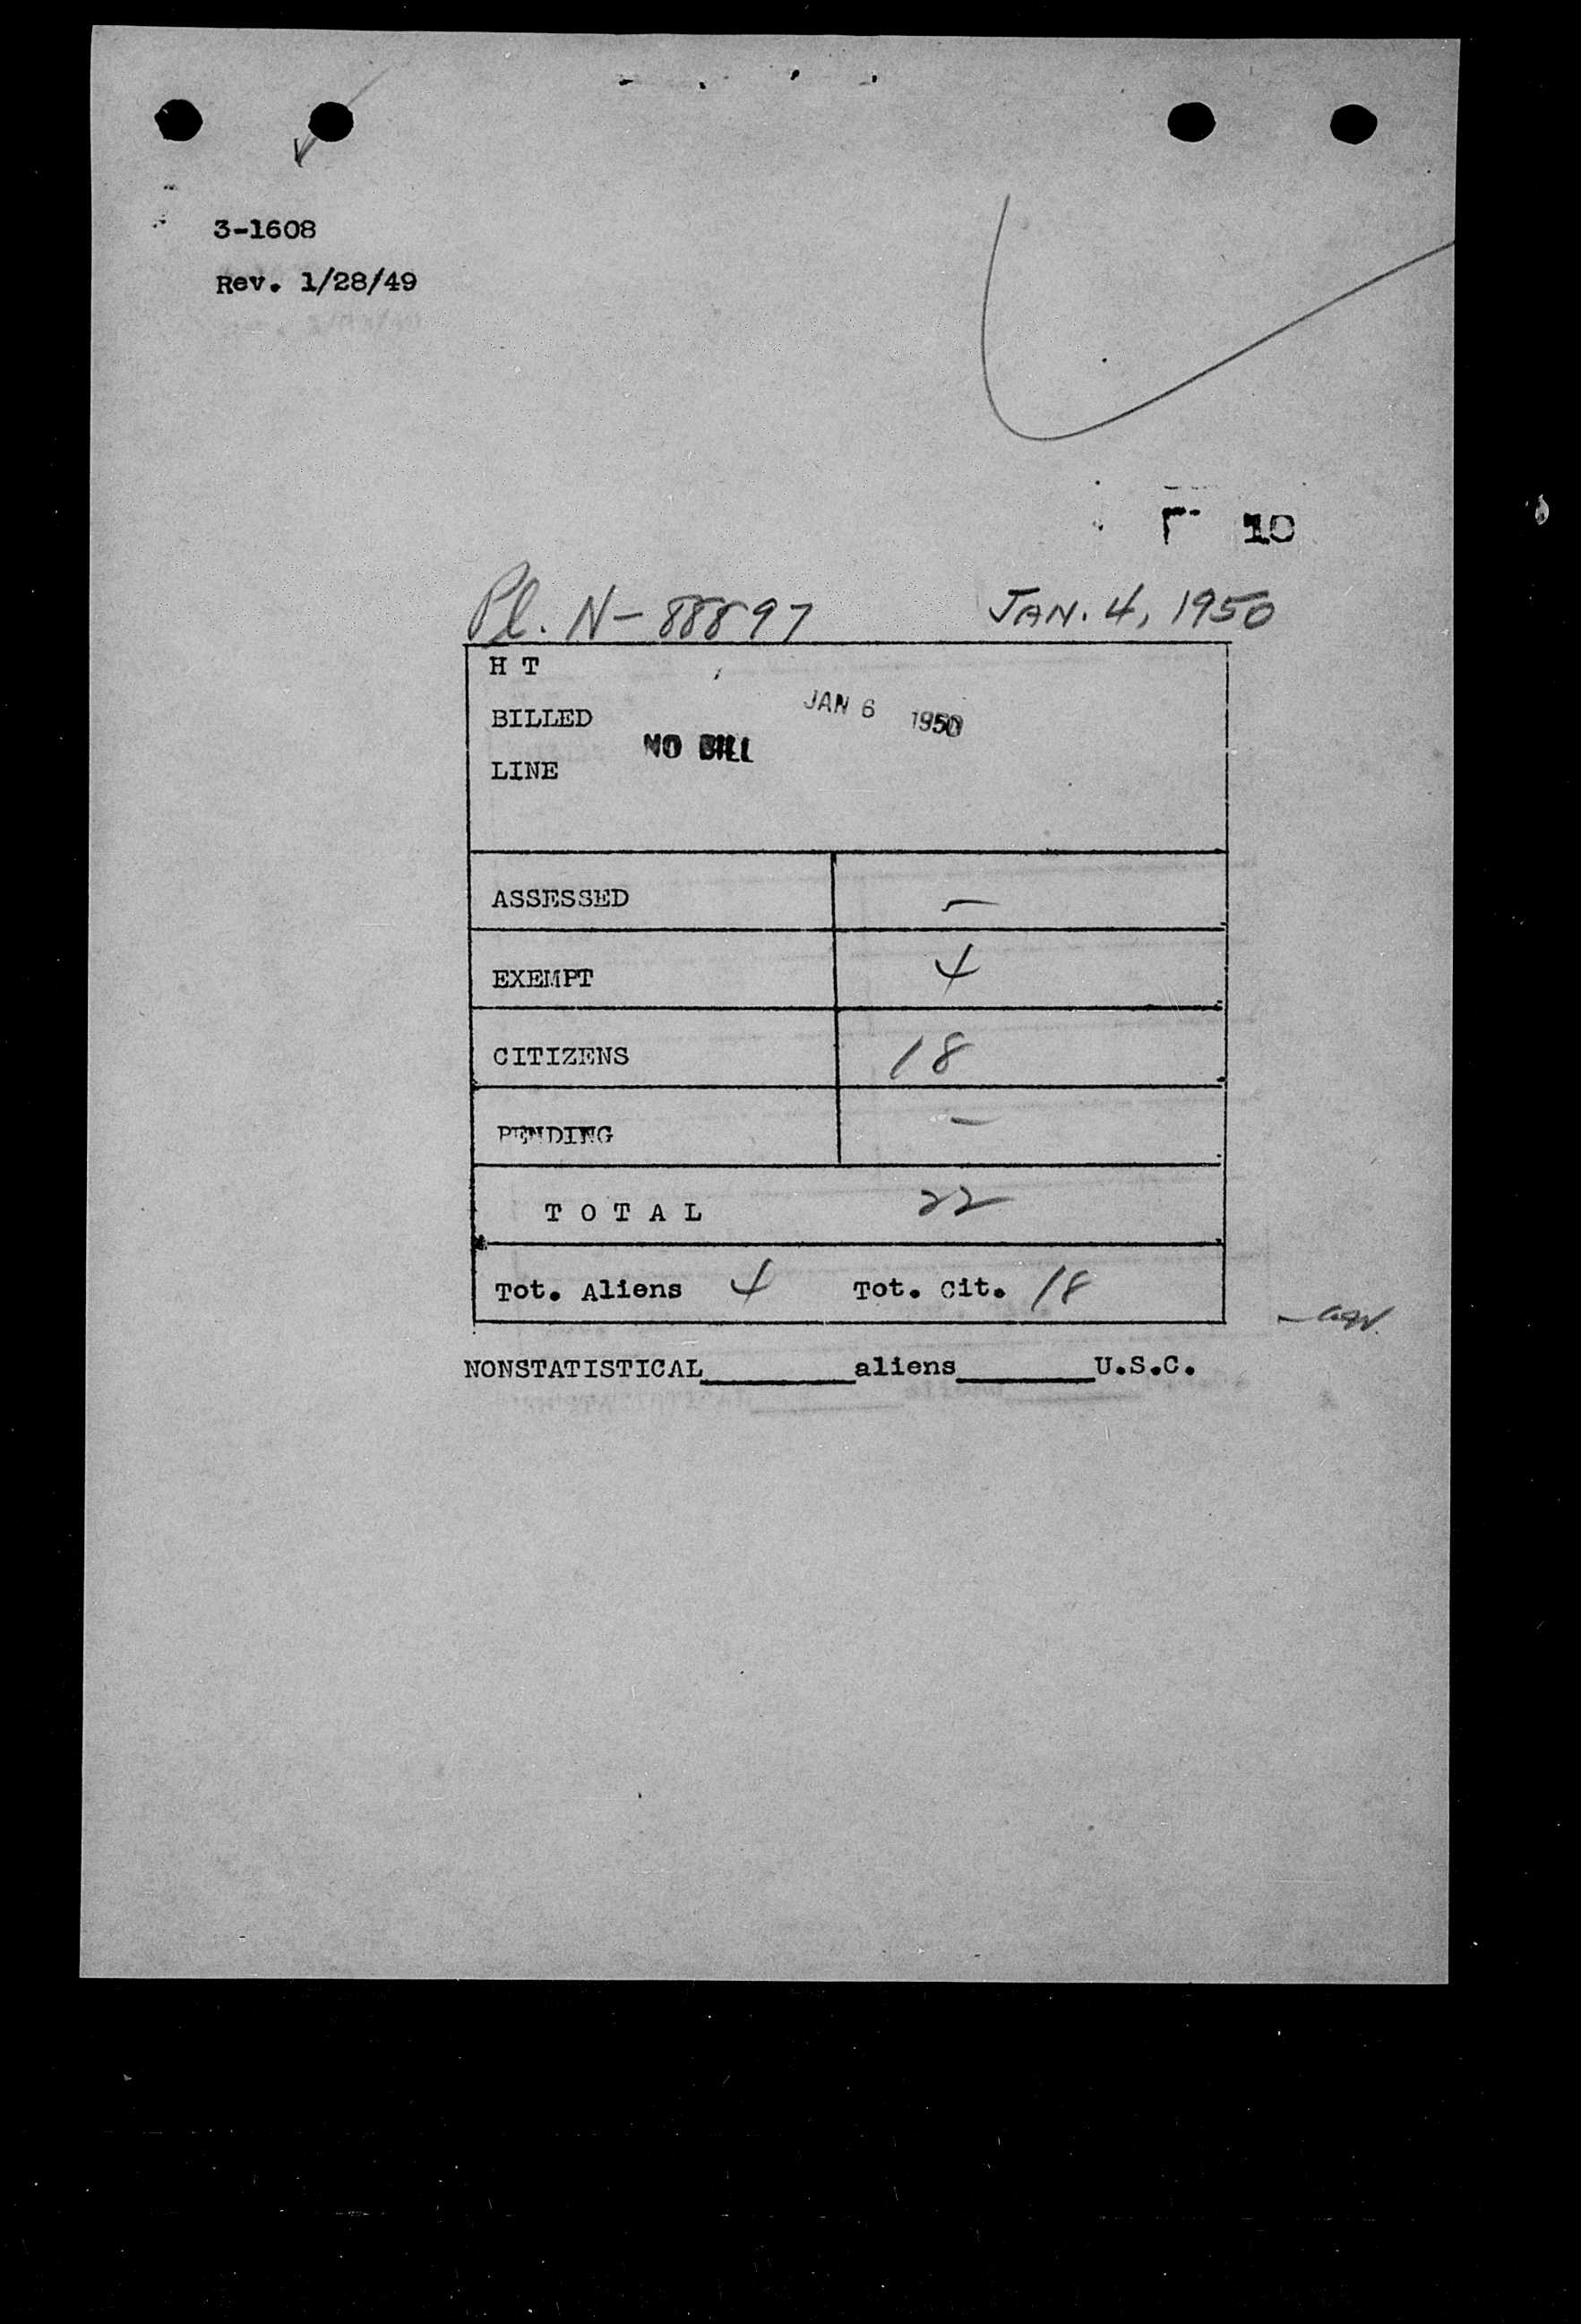 3-1608
Rev. 1/28/49
10
Pl. N-88897 JAN. 4, 1950
H T
BILLED JAN 6 1950
NO BILL
LINE
ASSESSED —
EXEMPT 4
CITIZENS 18
PENDING —
T O T A L 22
Tot. Aliens 4 Tot. Cit. 18
NONSTATISTICAL__________aliens_________U.S.C.